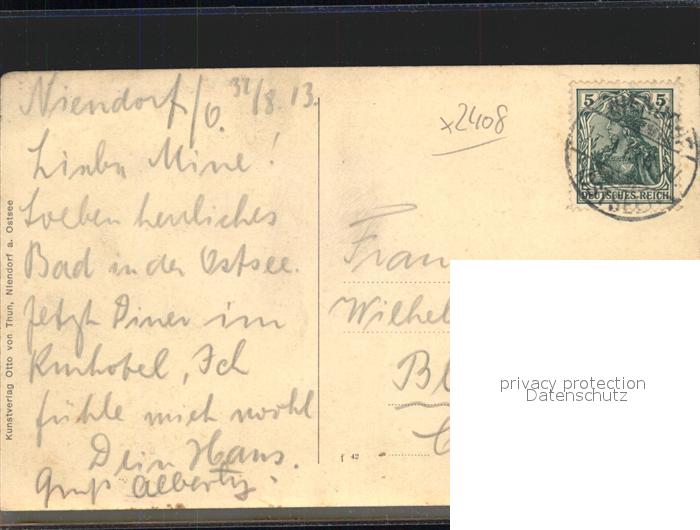 Niendorf/O. 31/8. 13.
Liebe Mine!
Soeben herrliches
Bad in der Ostsee.
Jetzt Diner im
Kurhotel, Ich
fühle mich wohl
Dein Hans.
Gruß Alberty.
Kunstverlag Otto von Thun, Niendorf a. Ostsee
x2408
5 5
DEUTSCHES REICH
Frau
Wilhel
Bl
f 42
privacy protection
Datenschutz